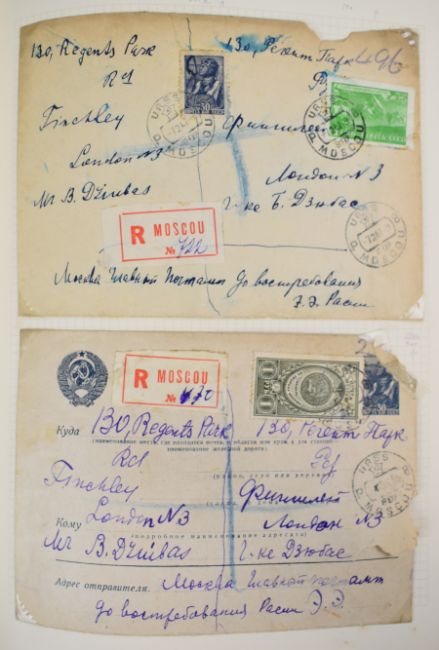 130, Regents Park
Rd
Finchley
London N3
Mr B. Dziubas
130, Регент Парк
496
Финчлей
Лондон N3
г-ке Б. Дзюбас
30
URSS
MOSCOU
R MOSCOU
№ 722
Москва Главный Почтамт До востребования
Э.Э. Расин
R MOSCOU
№ 470
Куда 130, Regents Park 130, Регент Парк
Rd
Finchley Финчлей
Кому London N3 Лондон N3
Mr B. Dziubas г-ке Дзюбас
Адрес отправителя. Москва Главный почтамт
до востребования Расин Э.Э.
URSS
MOSCOU